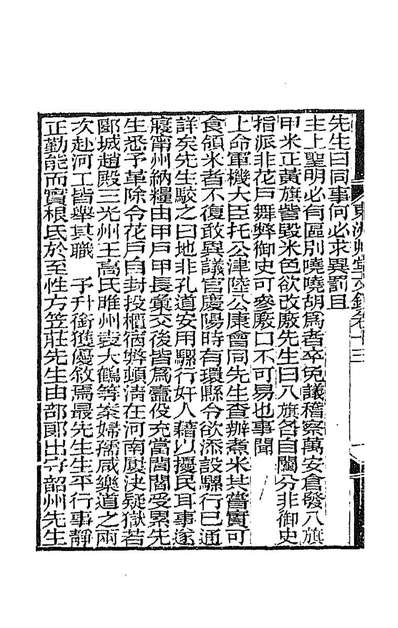 先生曰同事何必求異罰且
主上聖明必有區別嘵嘵胡為者卒免議稽察萬安倉發八旗
甲米正黃旗嘗毀米色欲改廒先生曰八旗各自關分非御史
指派非花戶舞弊御史可參廒口不可易也事聞
上命軍機大臣托公津陸公康會同先生查辦煮米其嘗實可
食領米者不復敢異議官慶陽時有環縣令欲添設騾行已通
詳矣先生駮之曰地非孔道安用騾行奸人藉以擾民耳事遂
寢甯州納糧由甲戶甲長彙交後皆為蠹役充當閭閻受累先
生悉予革除令花戶自封投櫃宿弊頓清在河南屢決疑獄若
郾城趙殿三光州王高氏睢州袁大鶴等案婦孺咸樂道之兩
次赴河工皆舉其職 予升銜獲優敘焉最先生生平行事靜
正勤能而實根氏於至性方笠莊先生由部郎出守韶州先生
東洲艸堂文鈔卷十三